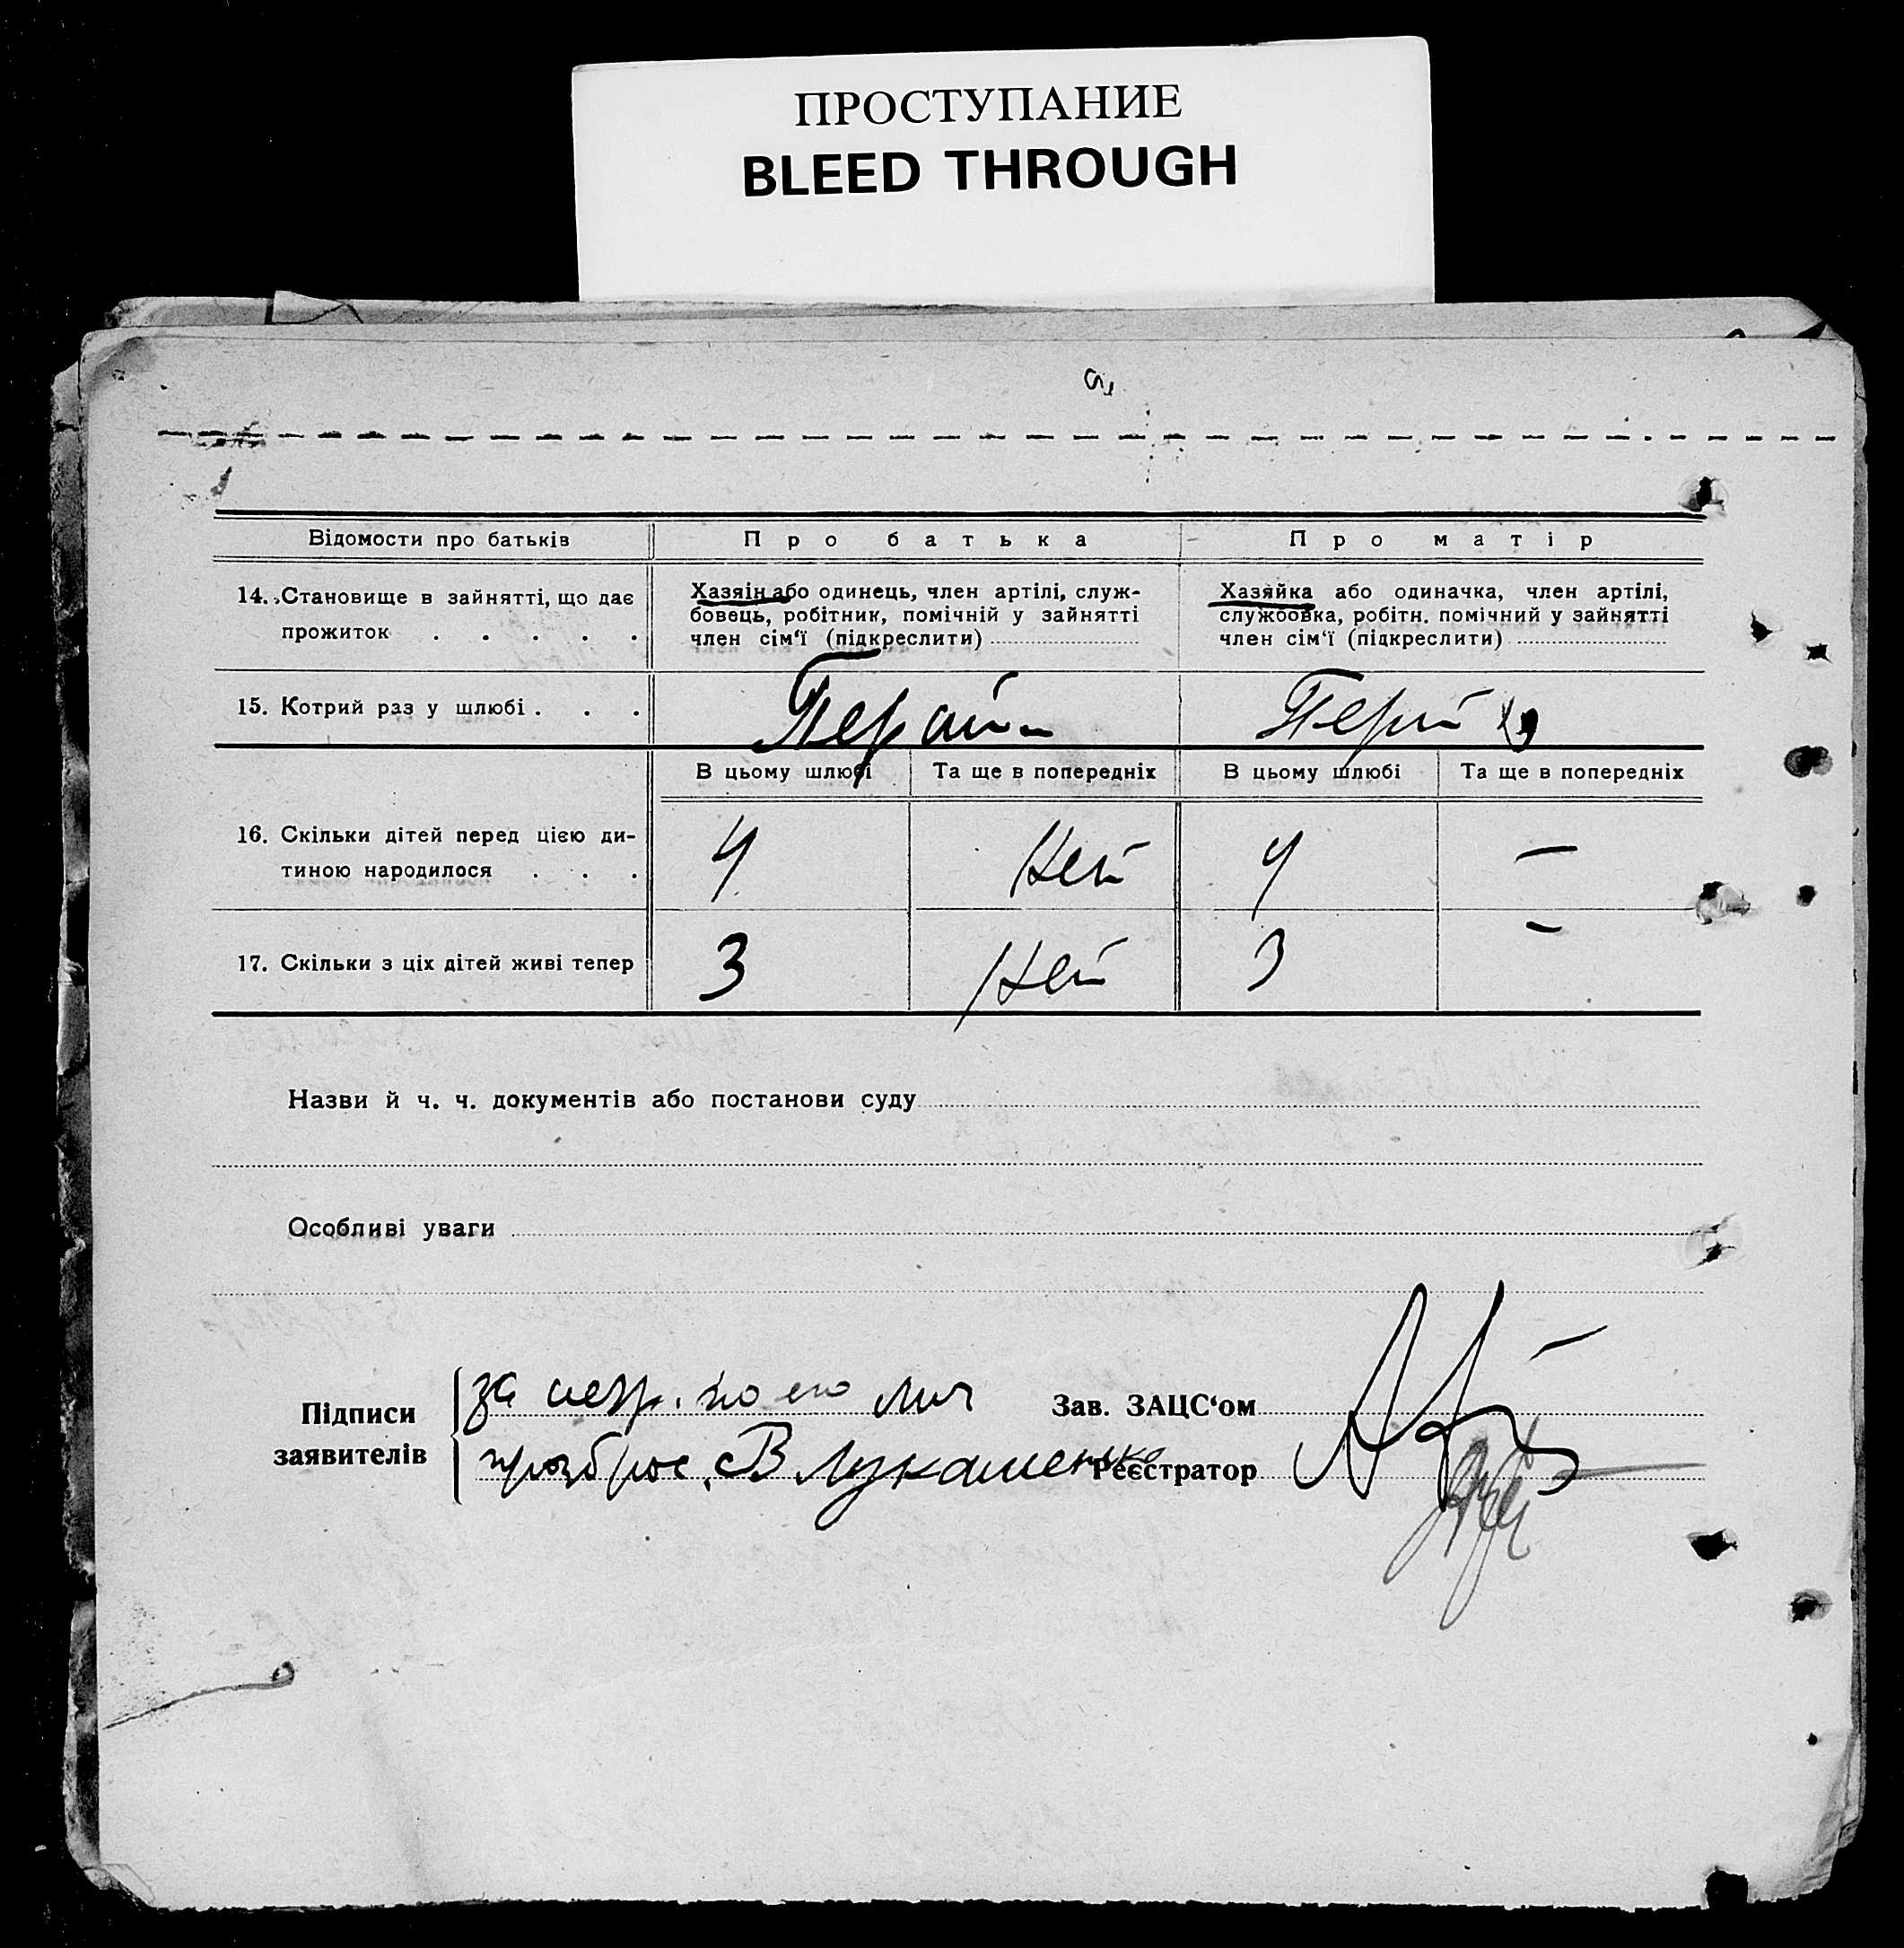 ПРОСТУПАНИЕ
BLEED THROUGH
Відомости про батьків
Про батька
Про матір
14. Становище в зайнятті, що дає
прожиток . . . . .
Хазяін або одинець, член артілі, служ-
бовець, робітник, помічній у зайнятті
член сім‘ї (підкреслити)
Хазяйка або одиначка, член артілі,
службовка, робітн. помічний у зайнятті
член сім‘ї (підкреслити)
15. Котрий раз у шлюбі . . .
В цьому шлюбі
Та ще в попередніх
В цьому шлюбі
Та ще в попередніх
16. Скільки дітей перед цією ди-
тиною народилося . . .
4
Нет
4
—
17. Скільки з ціх дітей живі тепер
3
Нет
3
—
Назви й ч. ч. документів або постанови суду
Особливі уваги
Підписи
заявителів
за негр. по его лич
В Лукашенко
Зав. ЗАЦС‘ом
Реєстратор